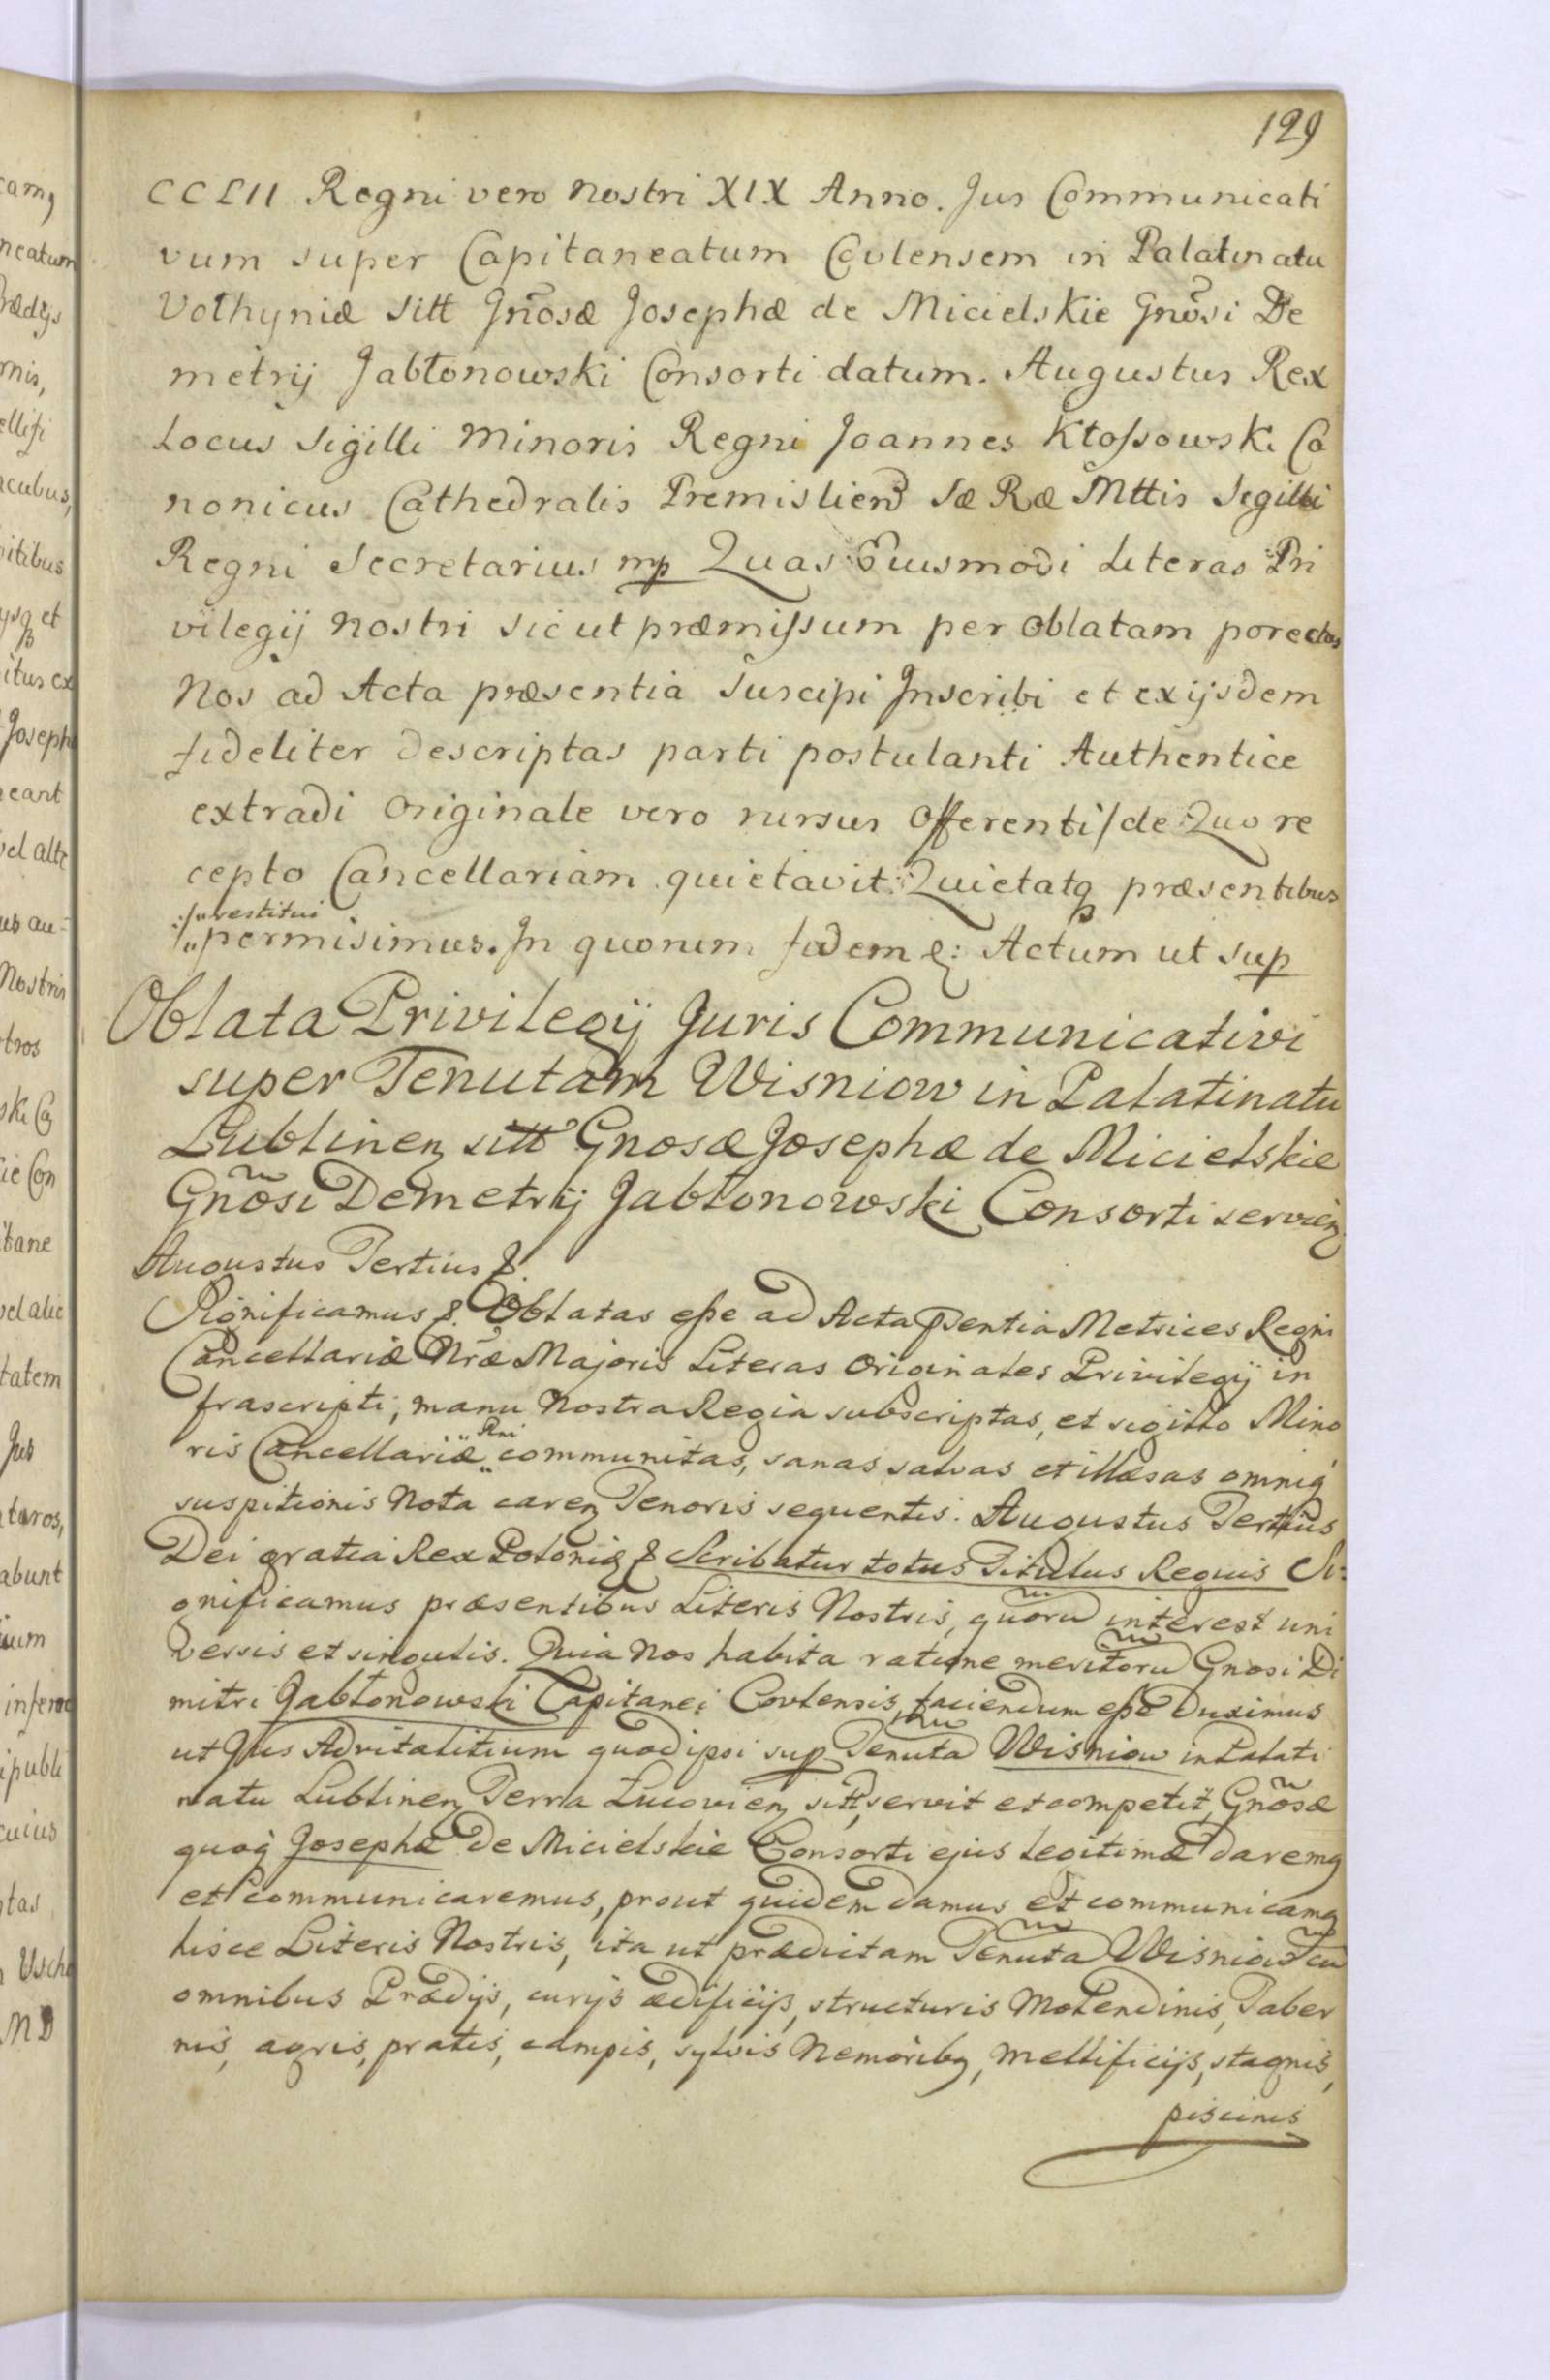 129
CCLII Regni vero nostri XIX Anno. Jus Communicati
vum super Capitaneatum Covlensem in Palatinatu
Volhyniæ sitt Gnosæ Josephæ de Micielskie Gnosi De
metrij Jabłonowski Consorti datum. Augustus Rex
Locus Sigilli Minoris Regni Joannes Kłossowski Ca
nonicus Cathedralis Premislien Sæ Ræ Mttis Sigilli
Regni Secretarius mp Quas Eiusmodi Literas Pri
vilegij nostri sic ut præmissum per oblatam porectas
Nos ad Acta præsentia Suscipi Inscribi et ex ijsdem
fideliter descriptas parti postulanti Authentice
extradi originale vero rursus offerenti /de Quo re
cepto Cancellariam quietavit Quietatq præsentibus
:/ restitui
permisimus. In quorum fidem &: Actum ut sup
Oblata Privilegij Juris Communicativi
super Tenutam Wisniow in Palatinatu
Lublinen sitt Gnosæ Josephæ de Micielskie
Gnõsi Demetrij Jabłonowski Consorti servien
Augustus Tertius &.
Significamus &. Oblatas esse ad Acta pñsentia Metrices Regni
Cancellariæ Nræ Majoris Literas originales Privilegij in
frascripti, manu Nostra Regia subscriptas, et sigillo Mino
Rni
ris Cancellariæ communitas, sanas salvas et illæsas omniq
suspitionis Nota caren Tenoris sequentis. Augustus Tertius
Dei gratia Rex Poloniæ & Scribatur totus Titulus Regius Si:
gnificamus præsentibus Literis Nostris, quorũ interest uni
versis et singulis. Quia Nos habita ratione meritorũ Gnosi Di
mitri Jabłonowski Capitanei Covlensis, faciendum esse Duximus
ut Jus Advitalitium quod ipsi sup Tenutã Wisniow in Palati
natu Lublinen Terra Lucovien sitt, servit et competit, Gnõsæ
quoq Josephæ de Micielskie Consorti ejus legitimæ daremq
et communicaremus, prout quidem damus et communicamq
hisce Literis Nostris, ita ut prædictam Tenutã Wisniow cũ
omnibus Prædijs, curijs ædificijs, structuris Molendinis, Taber
nis, agris, pratis, campis, sylvis Nemoribq, Mellificijs, stagnis,
piscinis